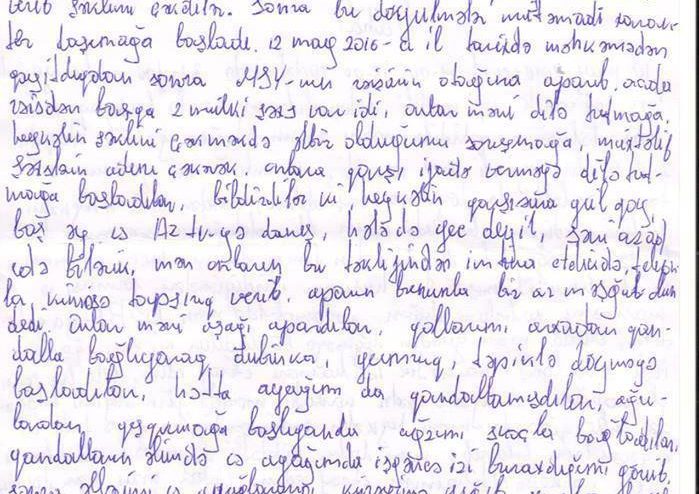 verib şəklini çəkdilər. Sonra bu döyülmələr mütəmadi xarak-
ter daşımağa başladı. 12 may 2016-cı il tarixdə məhkəmədən
qayıtdıqdan sonra MSY-nın rəisinin otağına aparıb. orada
rəisdən başqa 2 mülki şəxs var idi, onlar məni dilə tutmağa,
heykəlin şəklini çəkməkdə əlbir olduğumu soruşmağa, müxtəlif
şəxslərin adını çəkərək. onlara qarşı ifadə verməyə dilə tut-
mağa başladılar, bildirdilər ki heykəlin qarşısına gül qoy,
baş əy və Az tv-yə danış, hələ də gec deyil, səni azad
edə bilərik, mən onların bu təklifindən imtina etdikdə, telefon-
la kiməsə tapşırıq verib. aparın bununla bir az məşğul olun
dedi. Onlar məni aşağı apardılar, qollarımı arxadan qan-
dalla bağlıyaraq dubinka, yumruq, təpiklə döyməyə
başladılar, hətta ayağım da qandallamışdılar, ağrı-
lardan qışqırmağa başlıyanda ağzımı skoçla bağladılar,
qandalların əlimdə və ayağımda işgəncə izi buraxdığını görüb,
sonra əllərimi və ayaqlarımı